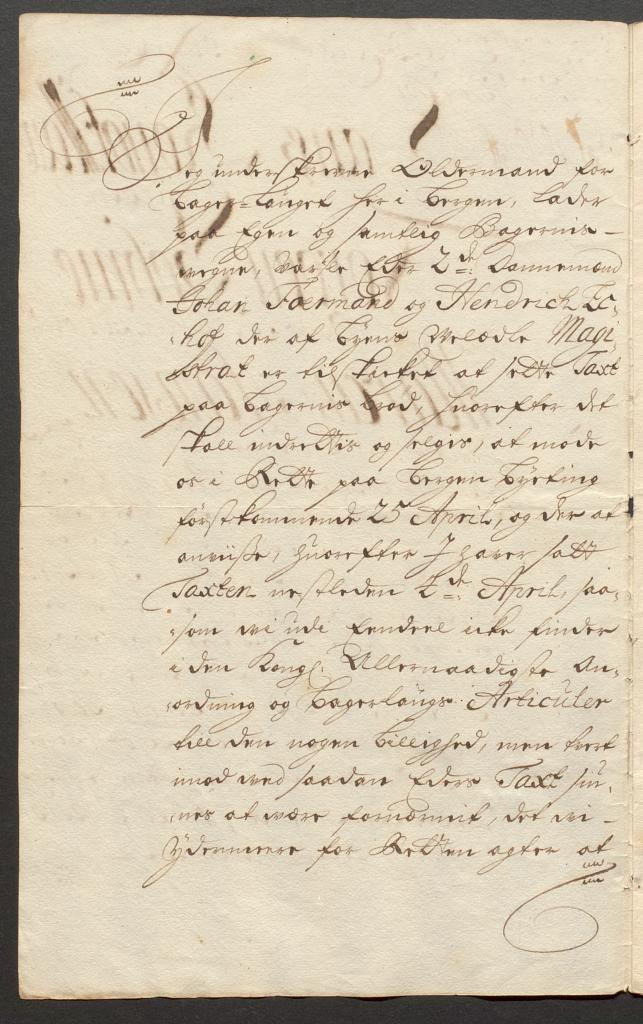 Jeg underskrevne Oldermand for
bager-lauget her i bergen, lader
paa Egen og samtlig Bagernis-
wegne, varsle Eder 2de: Dannemænd
Johan Foermand og Hendrich Ec-
-hof der af byens Welædle Magi-
-strat er tilskicket at sette Taxt
paa bagernis brød, huorefter det
skall indrettis og selgis, at møde
os i Rette paa bergen byeting
førstkommende 25 April, og der at
anviiße, huorefter I haver satt
Taxten nestleden 2de: April, saa-
-som wi udi Eendeel icke finder
i den Kongl: Allernaadigste An-
-ordning og bagerlaugs Articuler
till den nogen billighed, men tvert
imod wed saadan Eders Taxt siu-
-nes at være fornærmit, det wi-
ydermeere for Retten agter at